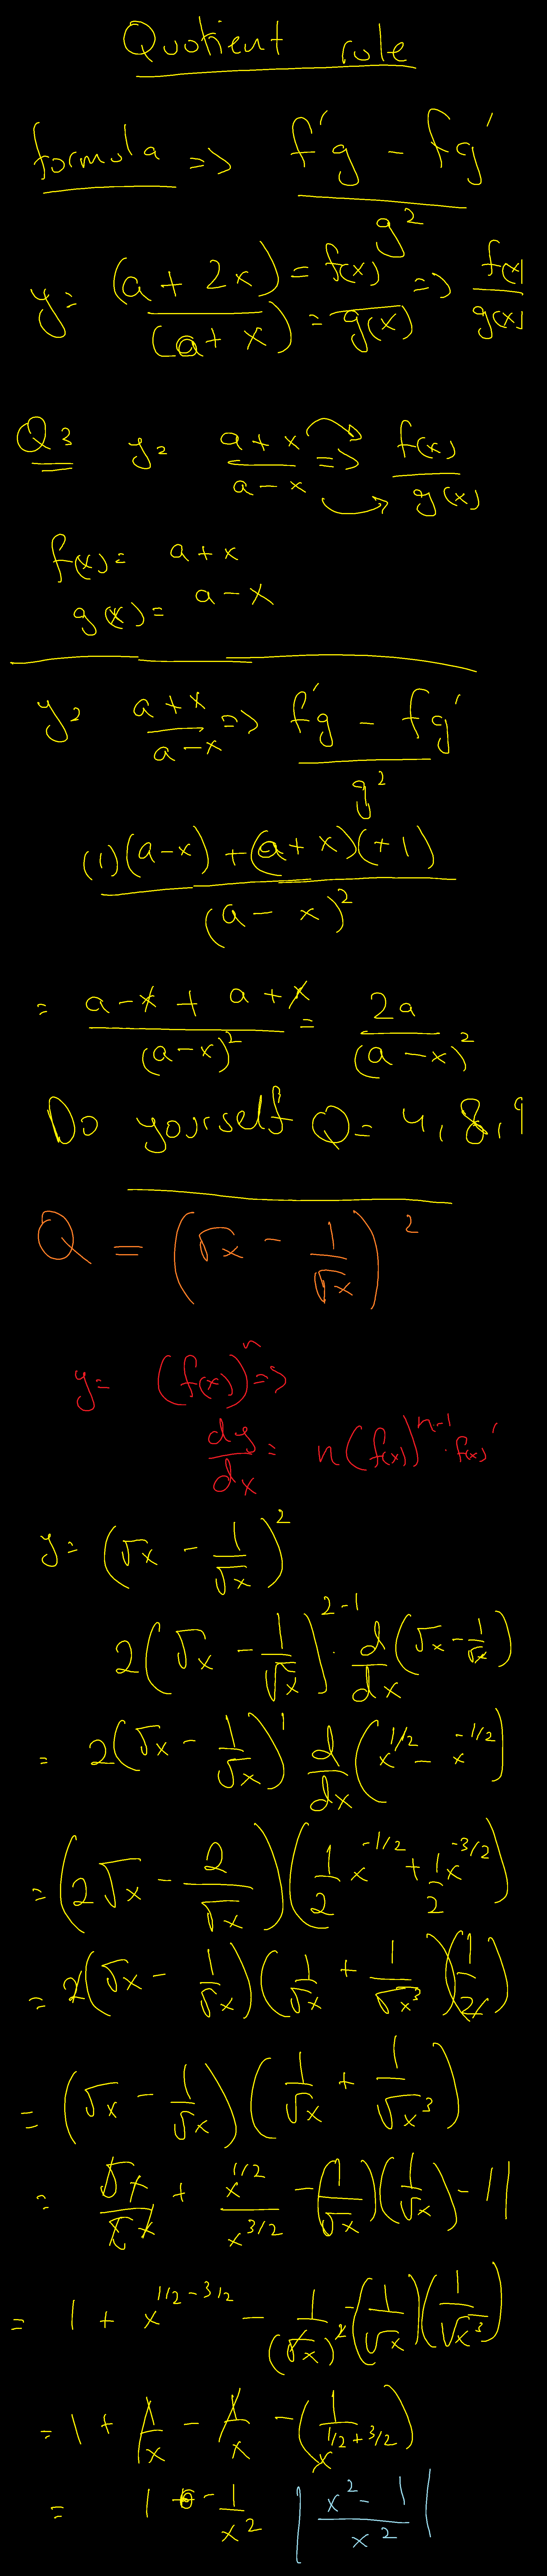 Quotient rule
formula => f'g - fg' / g²
y = (a + 2x) / (a + x) = f(x) / = g(x) => f(x) / g(x)
Q3 y = a + x / a - x => f(x) / g(x)
f(x) = a + x
g(x) = a - x
y = a + x / a - x => f'g - fg' / g²
(1)(a-x) + (a+x)(+1) / (a - x)²
= a - x + a + x / (a-x)² = 2a / (a - x)²
Do yourself Q = 4, 8, 9
Q = (√x - 1/√x)²
y = (f(x))ⁿ =>
dy/dx = n(f(x))ⁿ⁻¹ . f(x)'
y = (√x - 1/√x)²
2(√x - 1/√x)²⁻¹ . d/dx (√x - 1/√x)
= 2(√x - 1/√x)¹ d/dx (x^1/2 - x^-1/2)
= (2√x - 2/√x)(1/2 x^-1/2 + 1/2 x^-3/2)
= 2(√x - 1/√x)(1/√x + 1/√x³)(1/2)
= (√x - 1/√x)(1/√x + 1/√x³)
= √x/√x + x^1/2 / x^3/2 - (1/√x)(1/√x) - 11
= 1 + x^1/2-3/2 - 1/(√x)² - (1/√x)(1/√x³)
= 1 + 1/x - 1/x - (1/x^1/2+3/2)
= 1 - 1/x² | x² - 1 / x² |